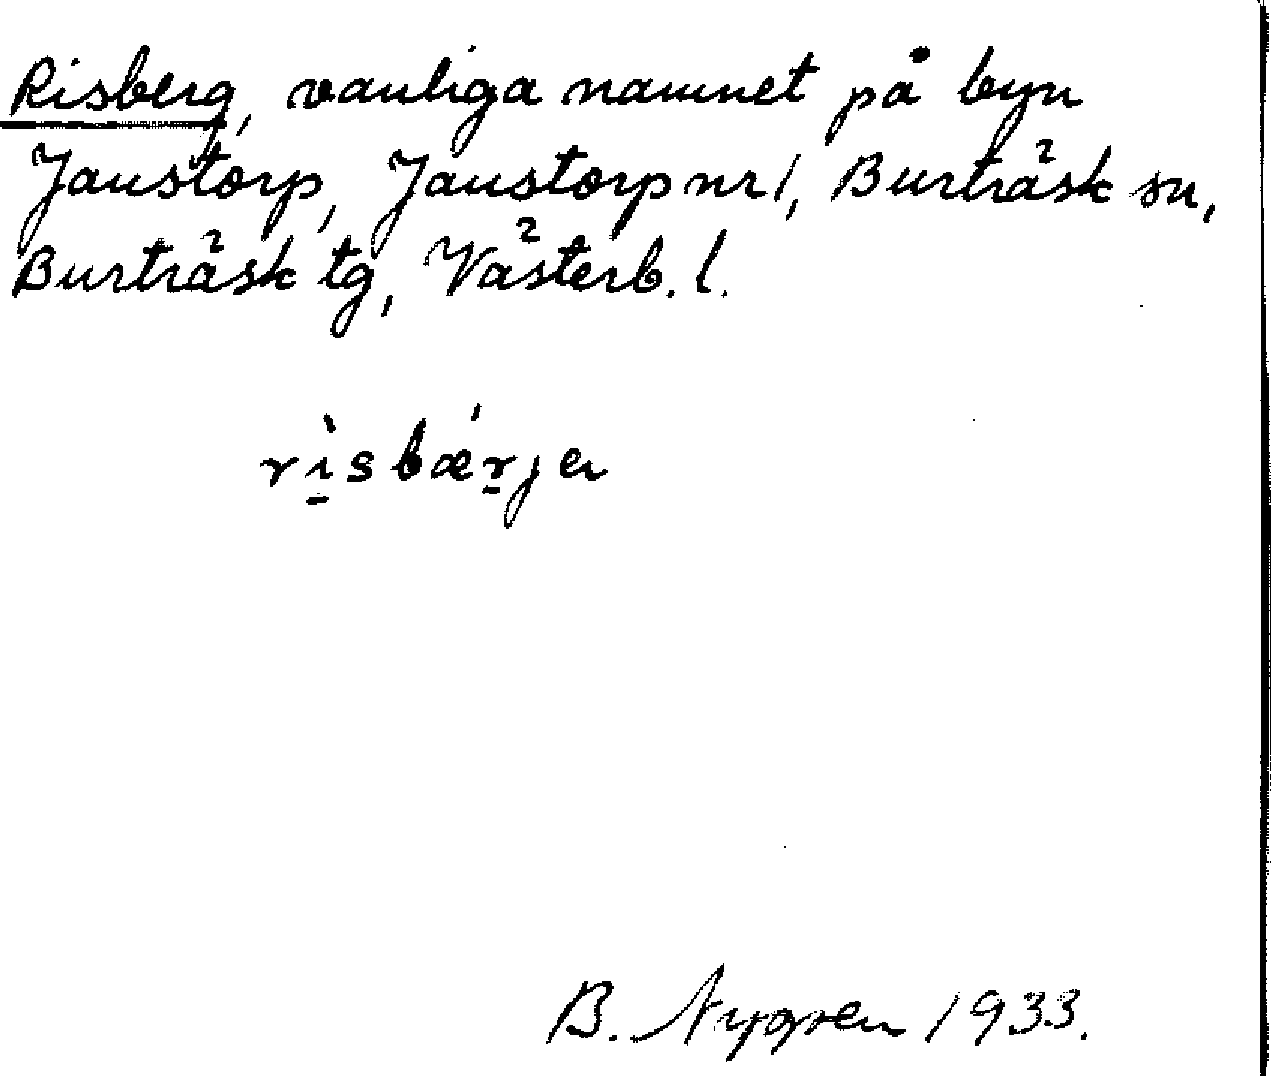 Risberg, vanliga namnet på byn
Janstorp, Janstorp nr 1, Burträsk sn,
Burträsk tg, Västerb. l.
rì̱sbǽṟjen
B. Nygren 1933.